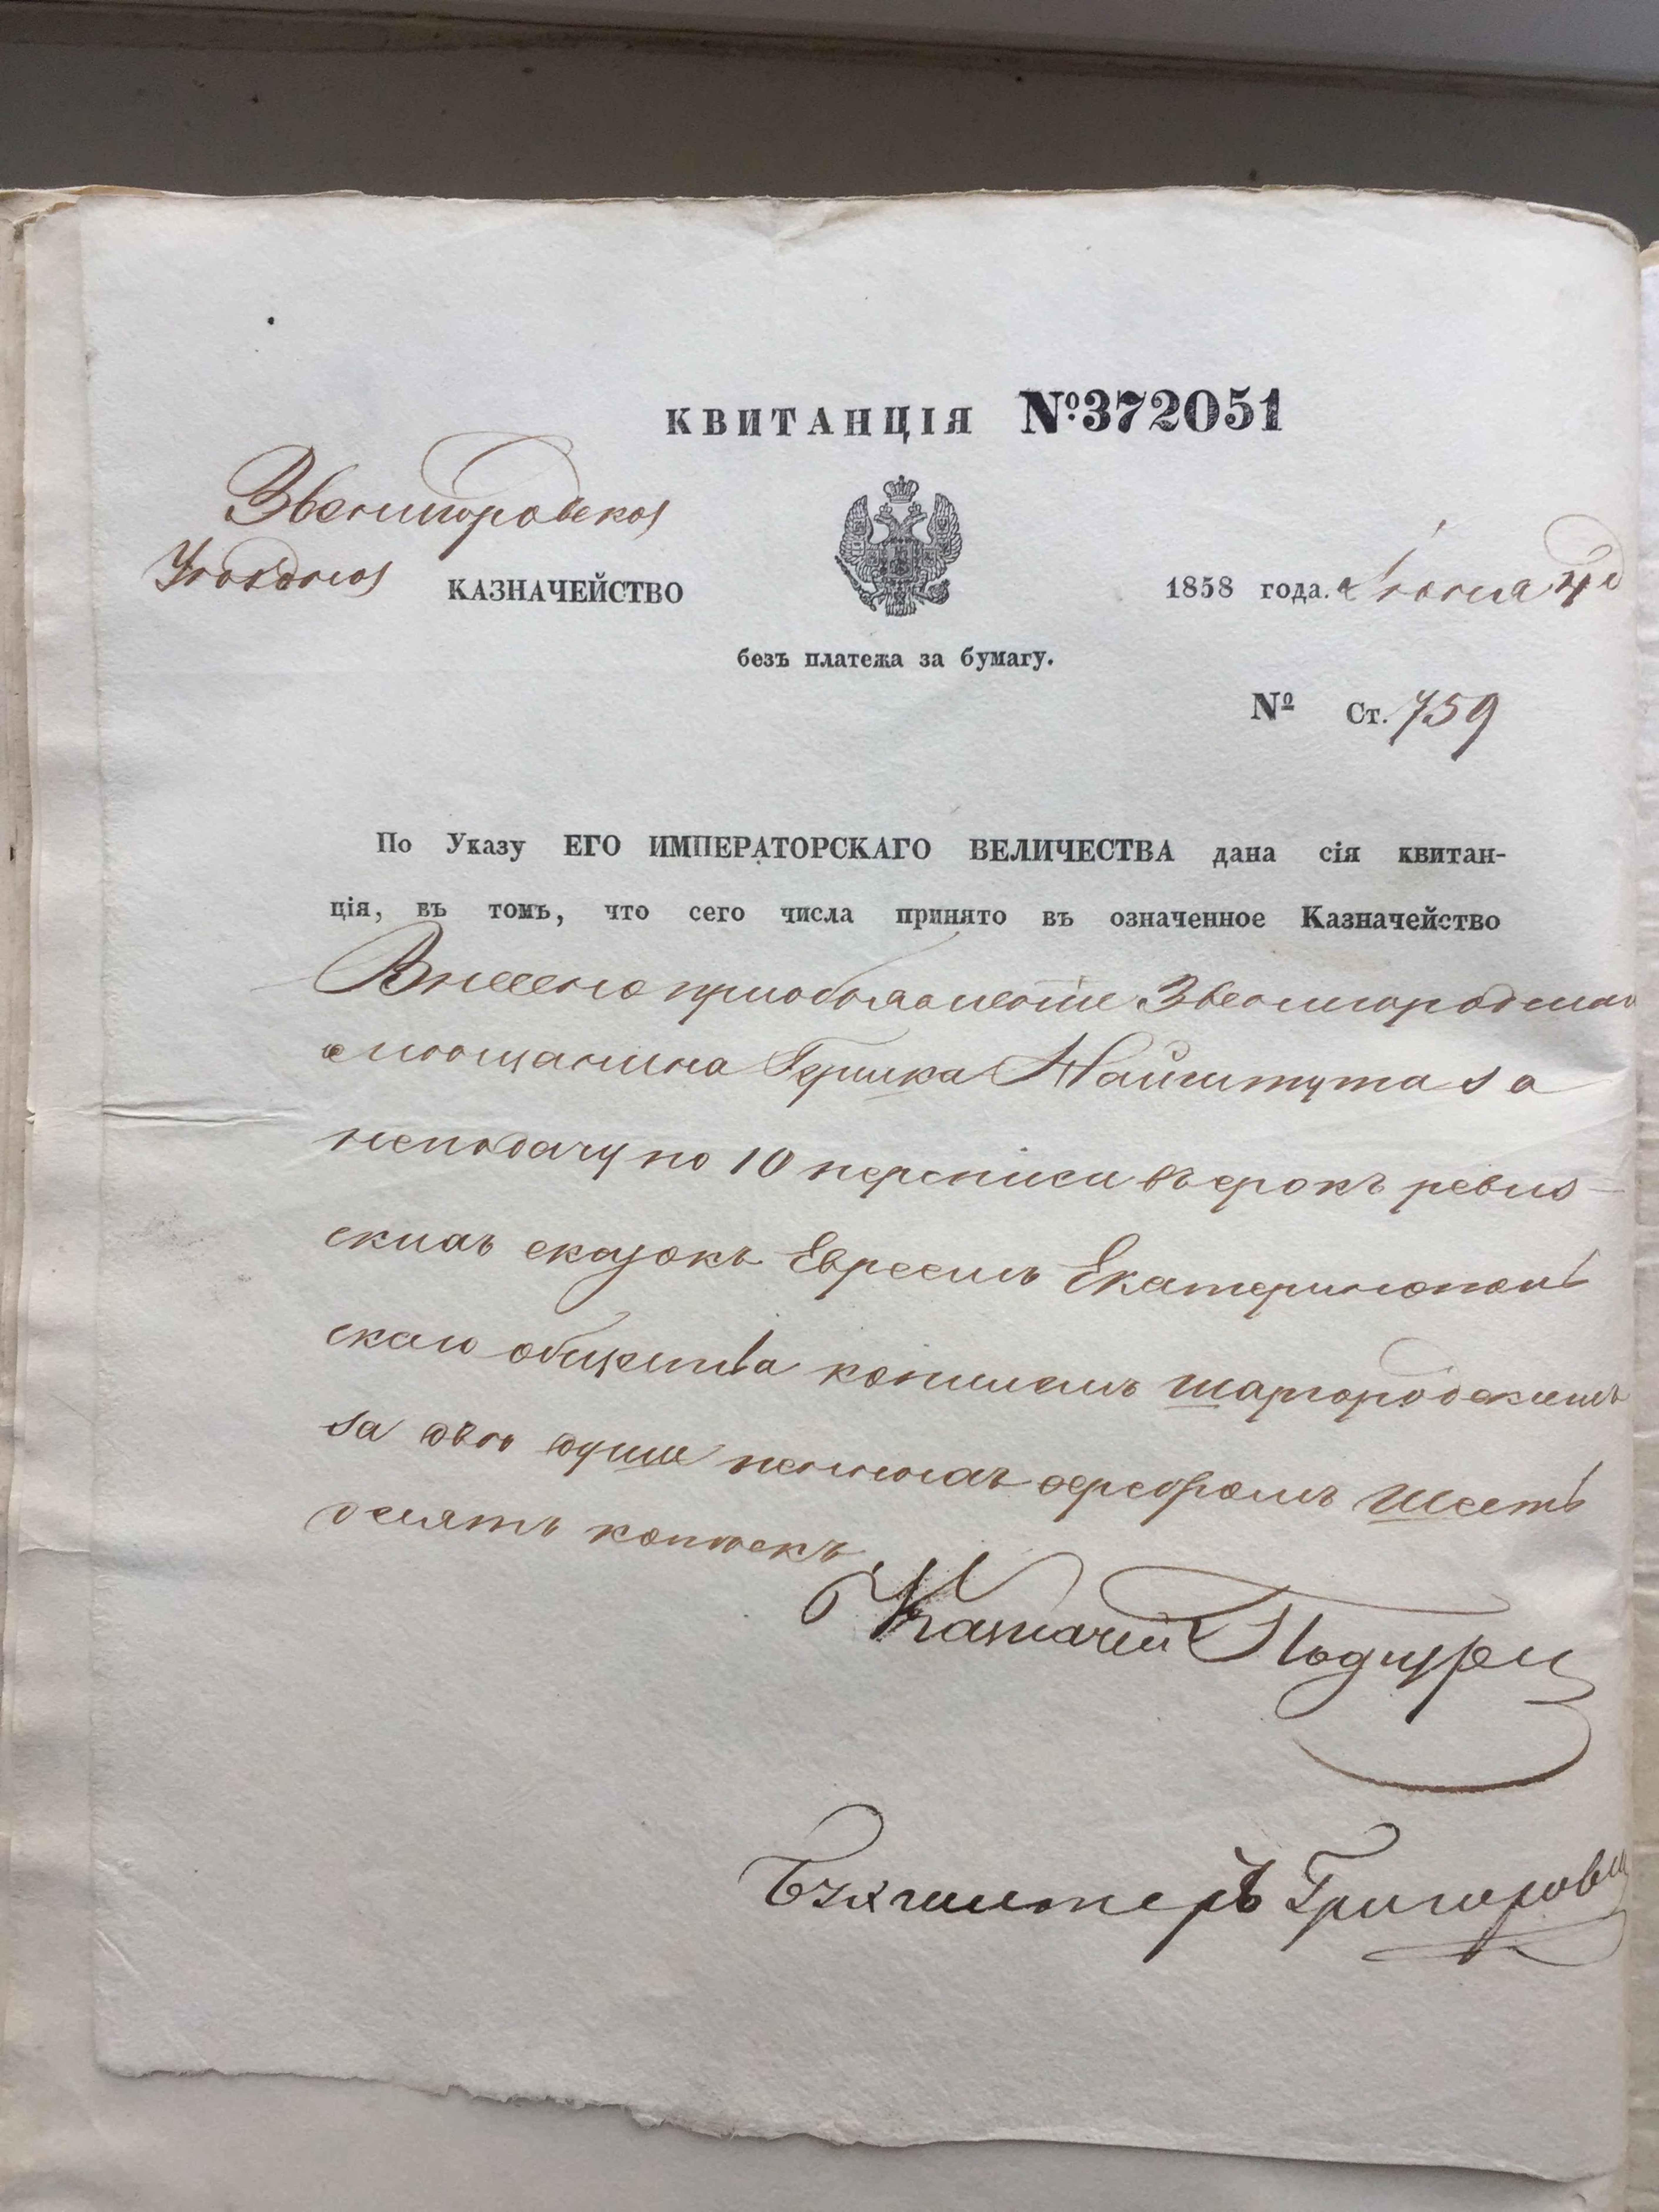 КВИТАНЦІЯ №372051
Звенигородское
Уѣздное КАЗНАЧЕЙСТВО
1858 года. Іюня 4 д
безъ платежа за бумагу.
№ Ст. 759
По Указу ЕГО ИМПЕРАТОРСКАГО ВЕЛИЧЕСТВА дана сія квитан-
ція, въ томъ, что сего числа принято въ означенное Казначейство
Внесено при объявленіи Звенигородскаго
мѣщанина Гершка
неподачу по 10 переписи въ срокъ ревиз-
скихъ сказокъ Евреемъ Екатеринопол
скаго общества Шаргородскимъ
за двѣ души пенныхъ серебромъ Шесть
десятъ копѣекъ
Казначей
Бухгалтеръ